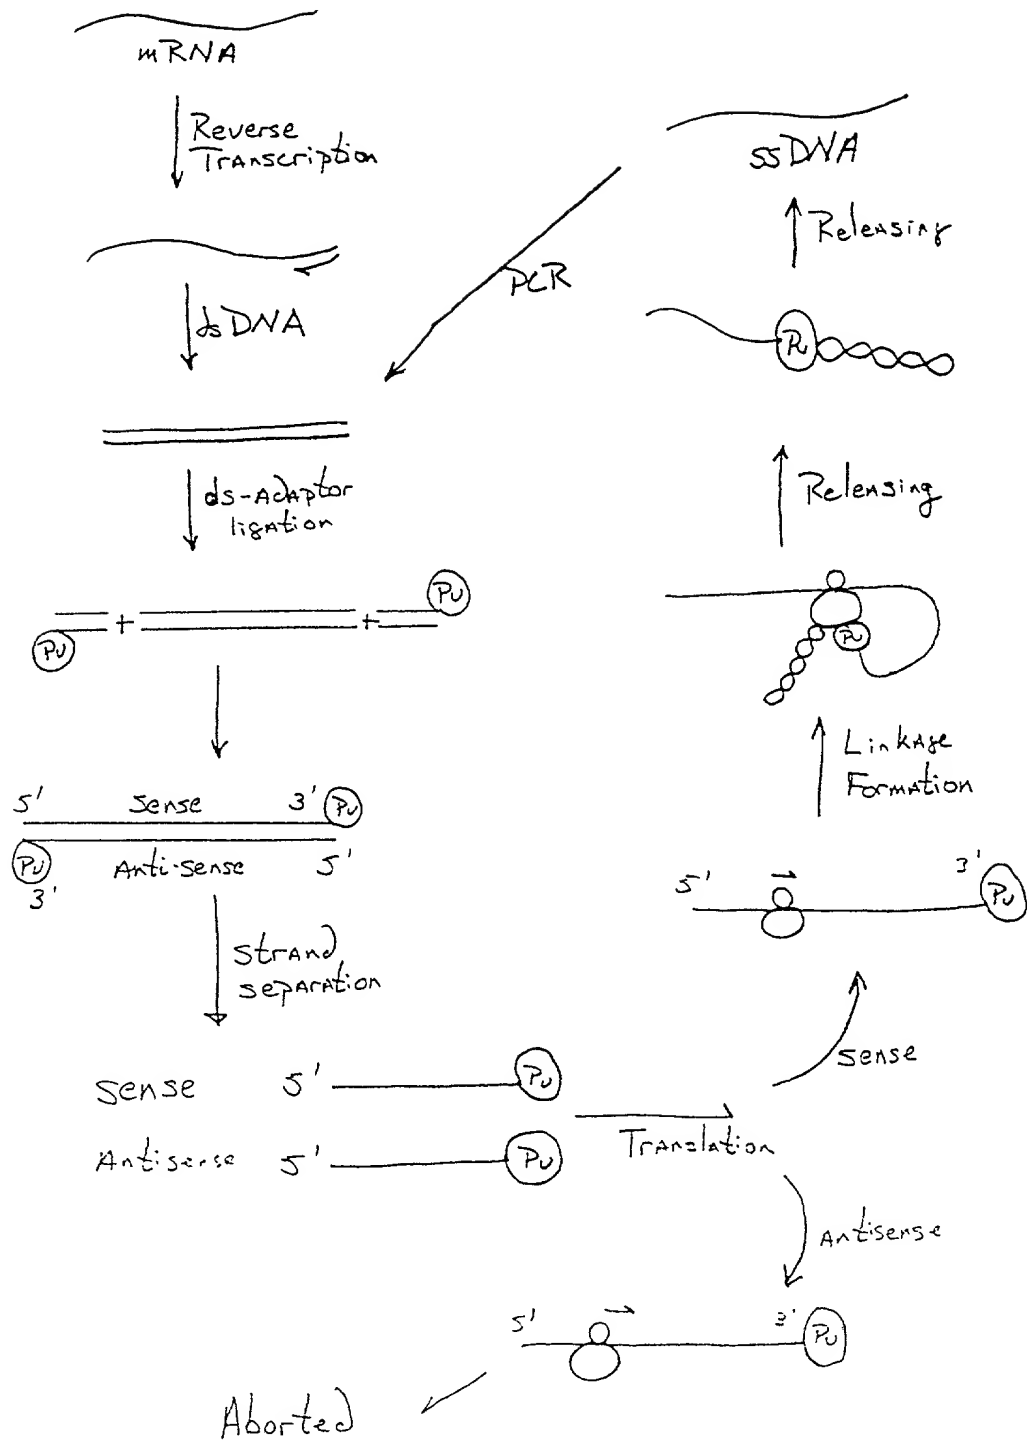 mRNA
Reverse
Transcription
dsDNA
ds-Adaptor
ligation
Pu
+ +
Pu
5' Sense 3' Pu
Pu Anti-sense 5'
3'
Strand
separation
Sense 5' Pu
Antisense 5' Pu
Translation
Sense
Antisense
5' 3' Pu
Aborted
5' 3' Pu
Linkage
Formation
Pu
Releasing
Pu
Releasing
ssDNA
PCR